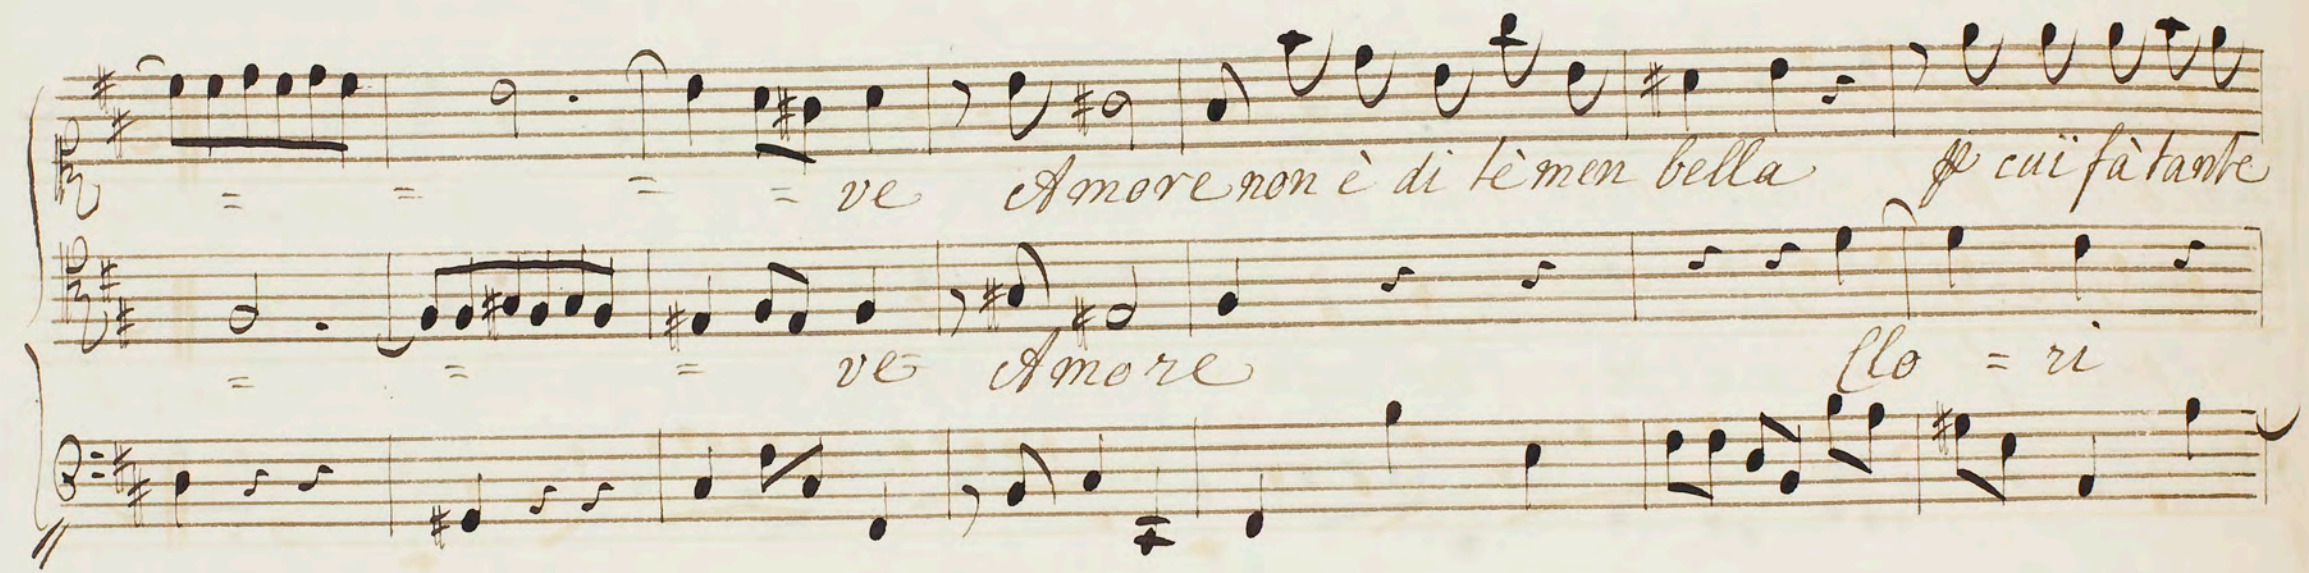 = = = = ve Amore non è di tè men bella ꝑ cuï fà tante
= = = ve Amore Clo = ri